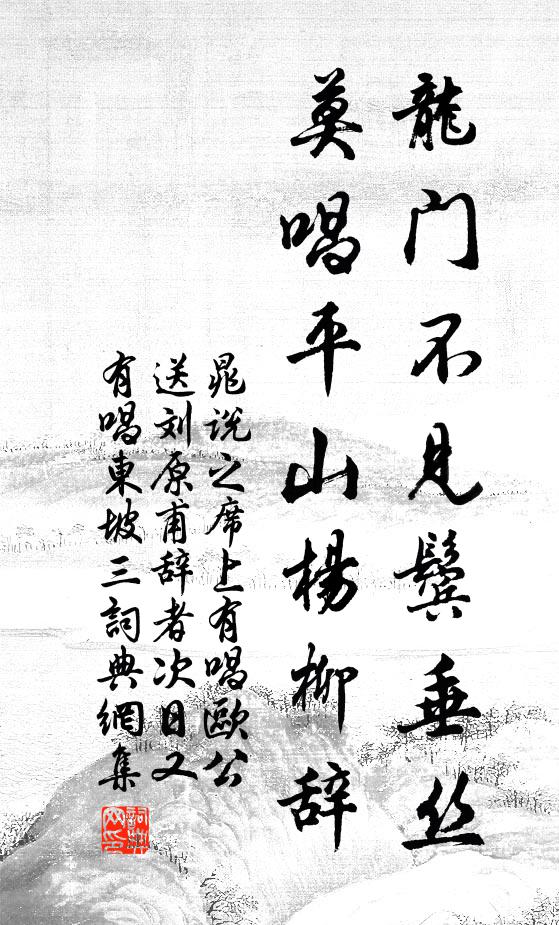 龍门不見鬓垂丝
莫唱平山楊柳辞
晁说之席上有唱歐公
送刘原甫辞者次日又
有唱東坡三詞典網集
詞典网印